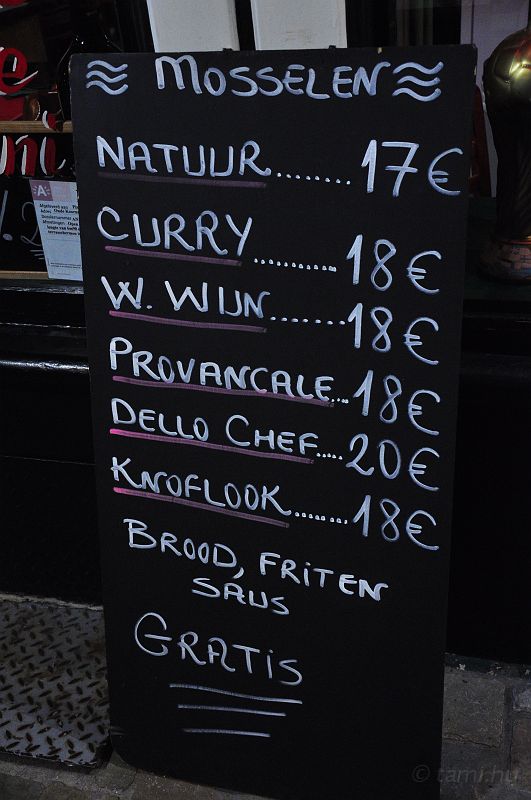 ≈ MOSSELEN ≈
NATUUR........ 17€
CURRY ............ 18€
W. WIJN........ 18€
PROVANCALE... 18€
DELLO CHEF..... 20€
KNOFLOOK........ 18€
BROOD, FRITEN
SAUS
GRATIS
© tami.hu